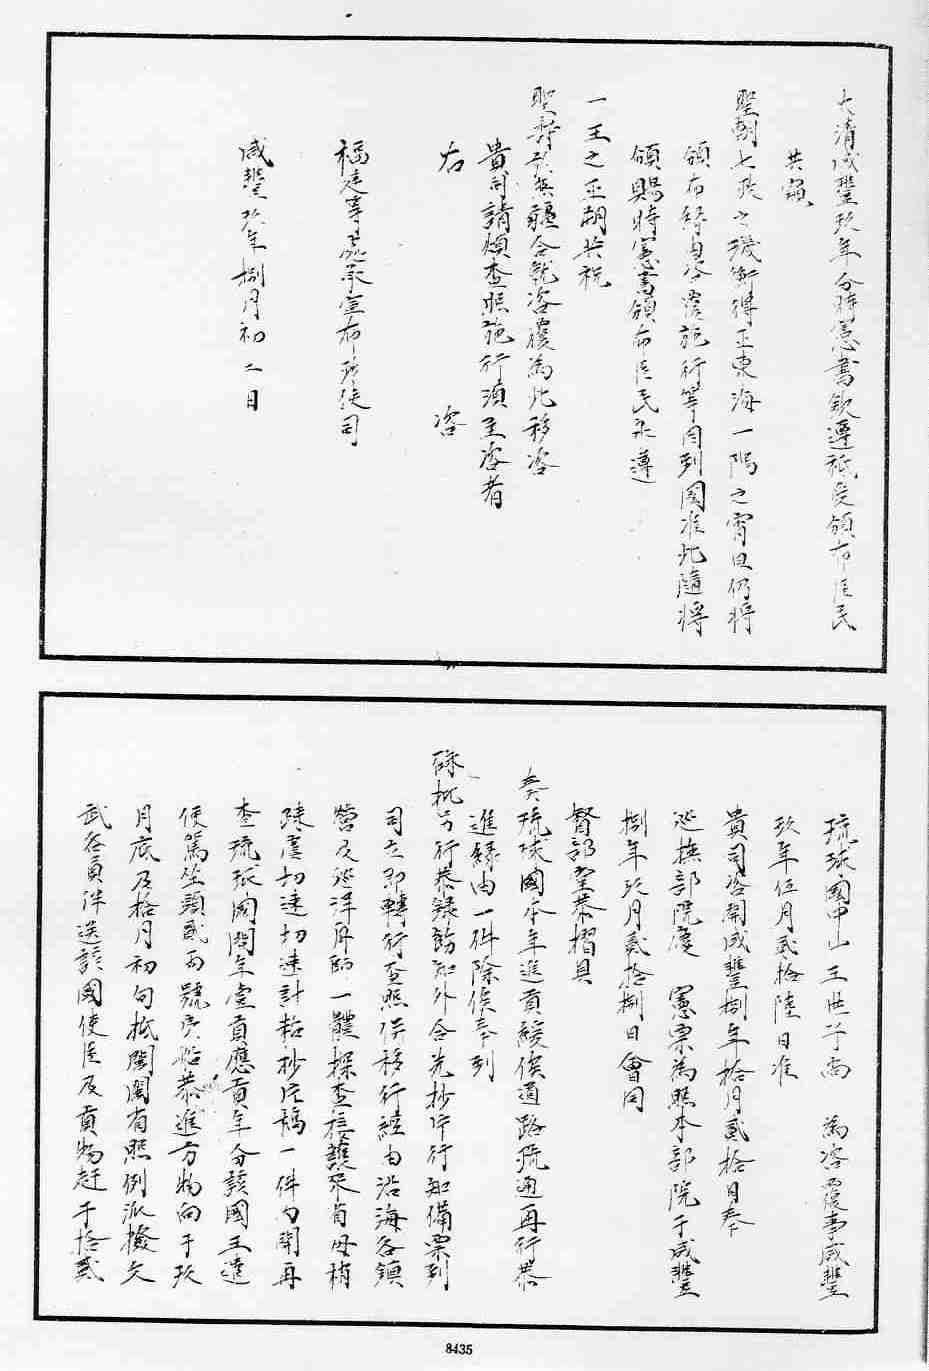 大清咸豐玖年分時憲書欽遵祗受頒布臣民
共窺
聖朝七政之璣衡得正東海一隅之宵旦仍將
頒布緣由咨覆施行等因到國准此隨將
頒賜時憲書頒布臣民永遵
一王之正朔共祝
聖壽於無疆合就咨覆為此移咨
貴司請煩查照施行須至咨者
右 咨
福建等處承宣布政使司
咸豐玖年捌月初二日
琉球國中山王世子尚 為咨覆事咸豐
玖年伍月貳拾陸日准
貴司咨開咸豐捌年拾月貳拾日奉
巡撫部院慶 憲票為照本部院于咸豐
捌年玖月貳拾捌日會同
督部堂恭摺具
奏琉球國本年進貢緩俟道路疏通再行恭
進緣由一件除俟奉到
硃批另行恭錄飭知外合先抄片行知備票到
司立即轉行查照併移行經由沿海各鎮
營及巡洋舟師一體探查護來省毋稍
踈虞切速切速計粘抄片稿一件內開再
查琉球國間年壹貢應貢年分該國王遣
使駕坐頭貳兩號貢船恭進方物向于玖
月底及拾月初旬抵閩閩省照例派撥文
武各員伴送該國使臣及貢物赶于拾貳
8435